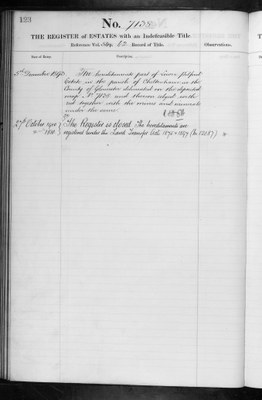 133
No. 713
THE REGISTER of ESTATES with an Indefeasible Title.
Reference Vol. 82 Record of Title.
Date of Entry.
Description
Observations.
3rd December 1867
The hereditaments part of
Estate in the parish of Cheltenham in the
County of Gloucester delineated on the deposited
map No. and thereon edged with
red together with the mines and minerals
under the same
27th October
The Register is closed. The hereditaments are
registered under the Land Transfer Acts 1875 & 1897 (No